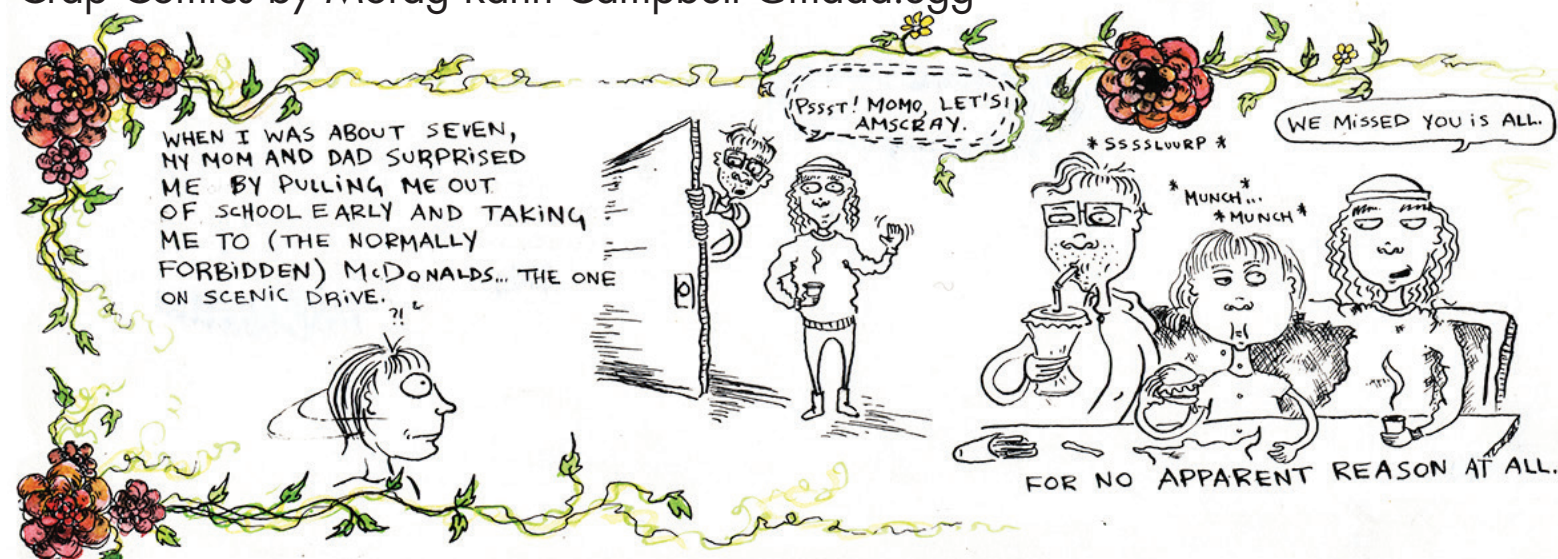 Crap Comics by Morag Rahn-Campbell Ginada.ogg
WHEN I WAS ABOUT SEVEN,
MY MOM AND DAD SURPRISED
ME BY PULLING ME OUT
OF SCHOOL EARLY AND TAKING
ME TO (THE NORMALLY
FORBIDDEN) McDONALDS... THE ONE
ON SCENIC DRIVE.
?!
PSSST! MOMO, LET'S
AMSCRAY.
*SSSSLUURP*
*MUNCH...*
*MUNCH*
WE MISSED YOU IS ALL.
FOR NO APPARENT REASON AT ALL.